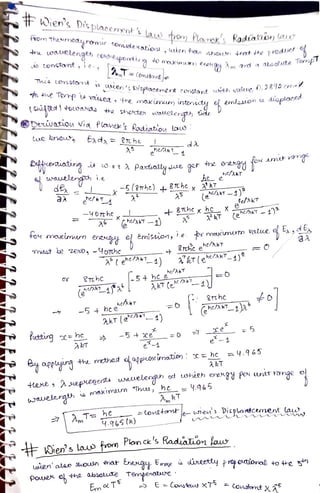 # Wien's Displacement's law from Planck's Radiation law
From thermodynamic considerations, Wien has shown that the product of
the wavelength corresponding to maximum energy λm and absolute Temp T
is constant, i.e., λmT = constant
This constant is Wien's Displacement constant with value 0.2892 cm-K
As the Temp is raised, the maximum intensity of emission is displaced
(shifted) towards the shorter wavelength side.
Derivation Via Planck's Radiation law
we know, Eλdλ = 8πhc/λ⁵ 1/(e^(hc/λkT) - 1) dλ
Differentiating it w.r.t λ Partially we get the energy for unit range
of wavelength i.e
dEλ/dλ = 1/(e^(hc/λkT) - 1) × -5(8πhc)/λ⁶ + 8πhc/λ⁵ × hc/λ²kT e^(hc/λkT)/(e^(hc/λkT) - 1)²
= -40πhc/λ⁶ × 1/(e^(hc/λkT) - 1) + 8πhc/λ⁵ × hc/λ²kT × e^(hc/λkT)/(e^(hc/λkT) - 1)²
For maximum energy of emission, i.e for maximum value of Eλ, dEλ/dλ
must be zero, -40πhc/λ⁶(e^(hc/λkT) - 1) + 8πhc e^(hc/λkT)/(e^(hc/λkT) - 1)² = 0
or 8πhc/(e^(hc/λkT) - 1)λ⁶ [-5 + hc e^(hc/λkT)/λkT(e^(hc/λkT) - 1)] = 0
-5 + hc e^(hc/λkT)/λkT(e^(hc/λkT) - 1) = 0 [∵ 8πhc/(e^(hc/λkT) - 1)λ⁶ ≠ 0]
Putting x = hc/λkT ⇒ -5 + xeˣ/(eˣ - 1) = 0 ⇒ xeˣ/(eˣ - 1) = 5
By applying the method of approximation: x = hc/λkT = 4.965
Here, λ represents wavelength at which energy per unit range of
wavelength is maximum Thus, hc/λmkT = 4.965
⇒ λmT = hc/4.965(k) = constant ← Wien's Displacement law
# Wien's law from Planck's Radiation law
Wien also shown that Energy Emax is directly proportional to the 5th
power of the absolute Temperature.
Em ∝ T⁵ ⇒ E = Constant × T⁵ = Constant × λ⁻⁵